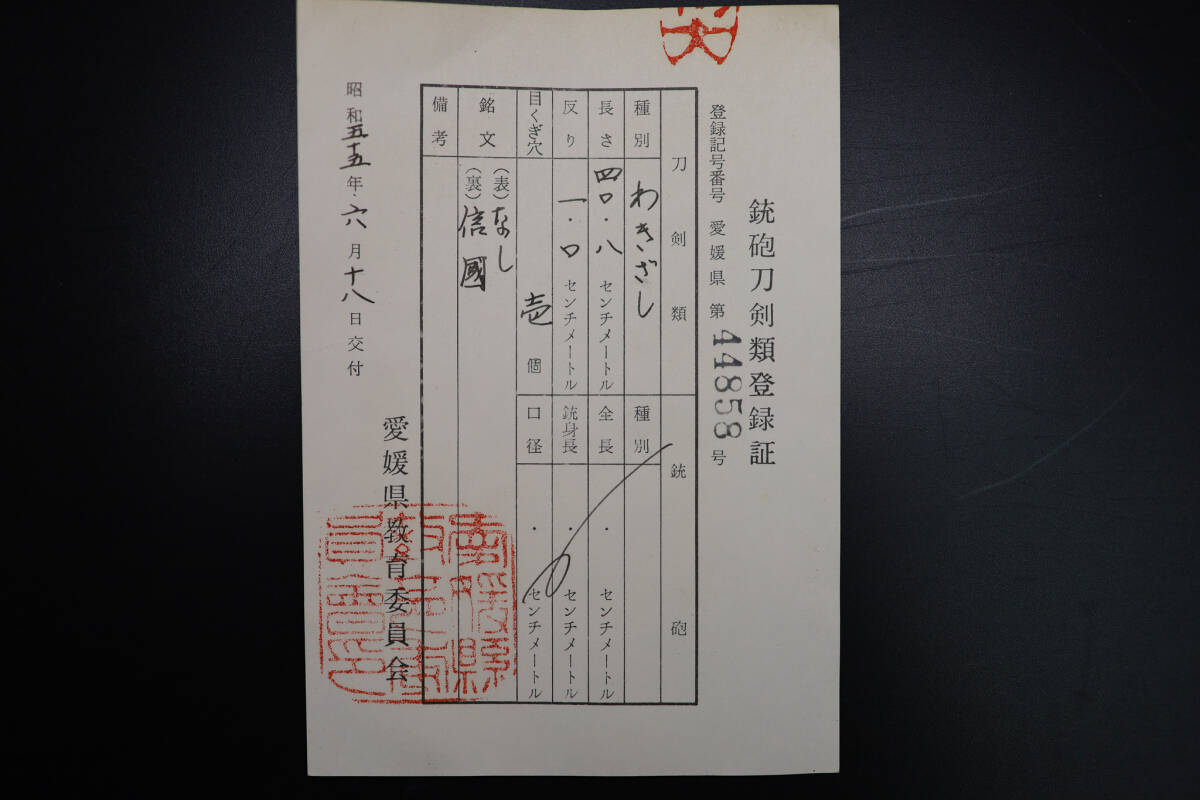 銃砲刀剣類登録証
登録記号番号 愛媛県 第44858号
刀剣類
種別 わきざし
長さ 四〇・八 センチメートル
反り 一・〇 センチメートル
目くぎ穴 壱 個
銘文 (表)なし
(裏)信國
備考
銃砲
種別
全長 ・ センチメートル
銃身長 ・ センチメートル
口径 ・ センチメートル
昭和五十五年六月十八日交付
愛媛県教育委員会